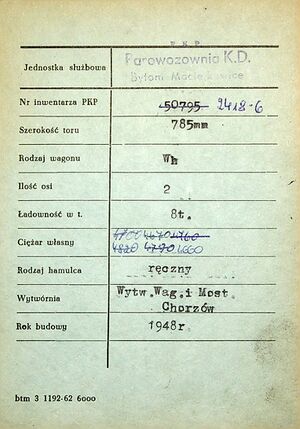 P K P
Jednostka służbowa Parowozownia K.D.
Bytom Maciejkowice
Nr inwentarza PKP 50795 2418-6
Szerokość toru 785mm
Rodzaj wagonu Wh
Ilość osi 2
Ładowność w t. 8t.
4700 4670 4760
Ciężar własny 4820 4790 4600
Rodzaj hamulca ręczny
Wytwórnia Wytw.Wag.i Most.
Chorzów
Rok budowy 1948r.
btm 3 1192-62 6000